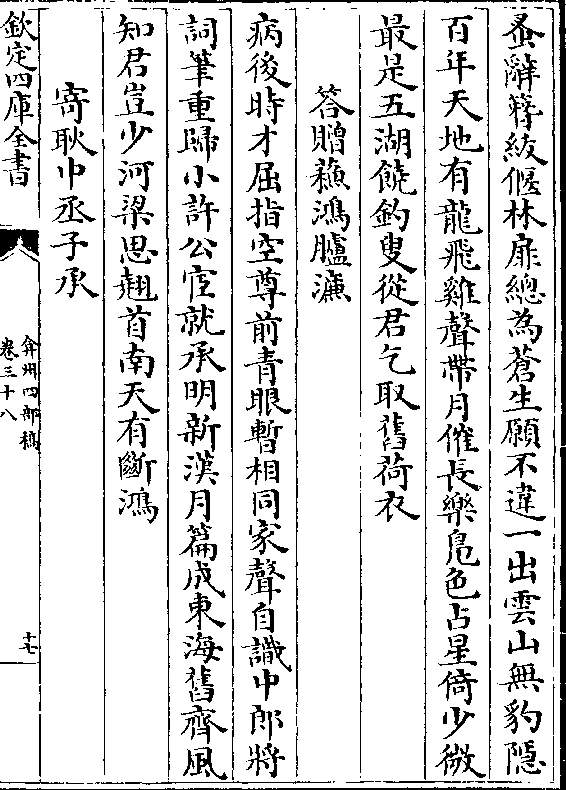 蚤辭簪紱偃林扉總為蒼生願不違一出雲山無豹隱
百年天地有龍飛雞聲帶月催長樂鳬色占星倚少微
最是五湖饒釣叟從君乞取舊荷衣
答贈蘓鴻臚濂
病後時才屈指空尊前青眼暫相同家聲自識中郎將
詞筆重歸小許公宦就承明新漢月篇成東海舊齊風
知君豈少河梁思翹首南天有斷鴻
寄耿中丞子承
欽定四庫全書
弇州四部稿
卷三十八
十七